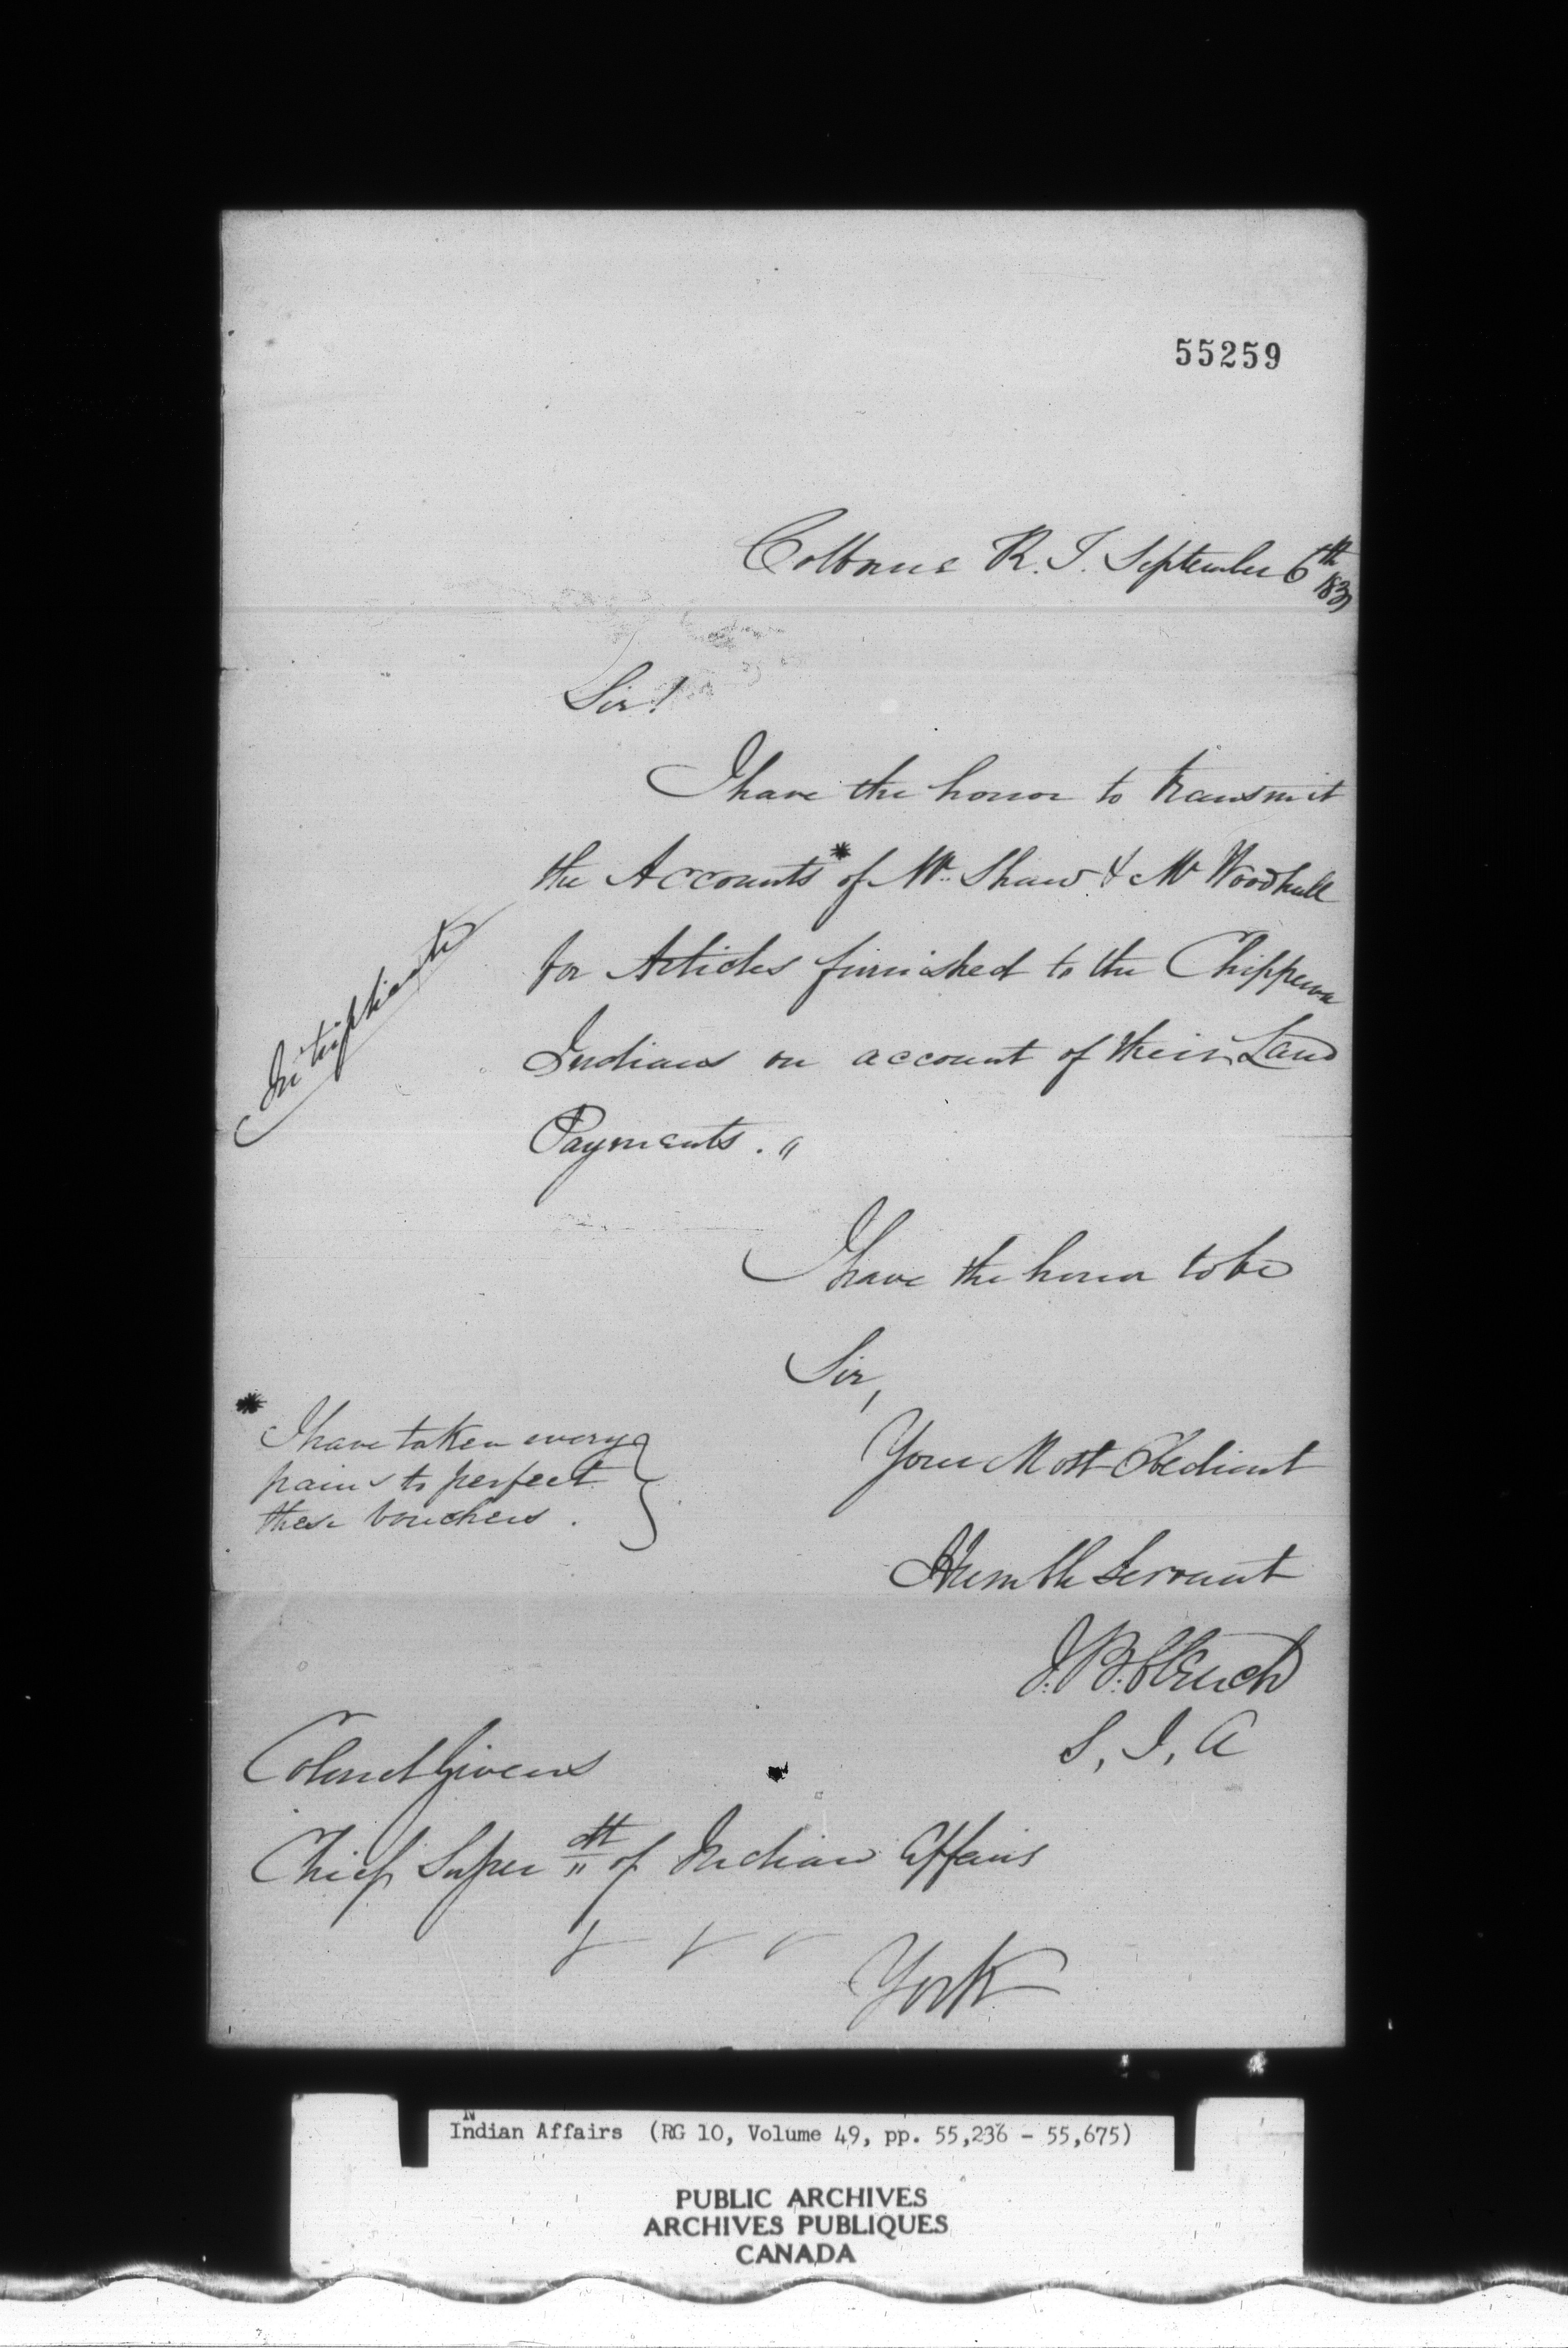 55259
Colborne R. T. September 6th 183
Sir!
I have the honor to transmit
the Accounts * of Mr. Shaw & Mr Woodhull
for Articles furnished to the Chippewa
Indians on account of their Land
Payments. "
In triplicate
I have the honor to be
Sir,
Your Most Obedient
Humble Servant
J. B. Clench
S, I, A
* I have taken every
pains to perfect
these vouchers.
Colonel Givens
Chief Super dt of Indian Affairs
York
Indian Affairs (RG 10, Volume 49, pp. 55,236 - 55,675)
PUBLIC ARCHIVES
ARCHIVES PUBLIQUES
CANADA